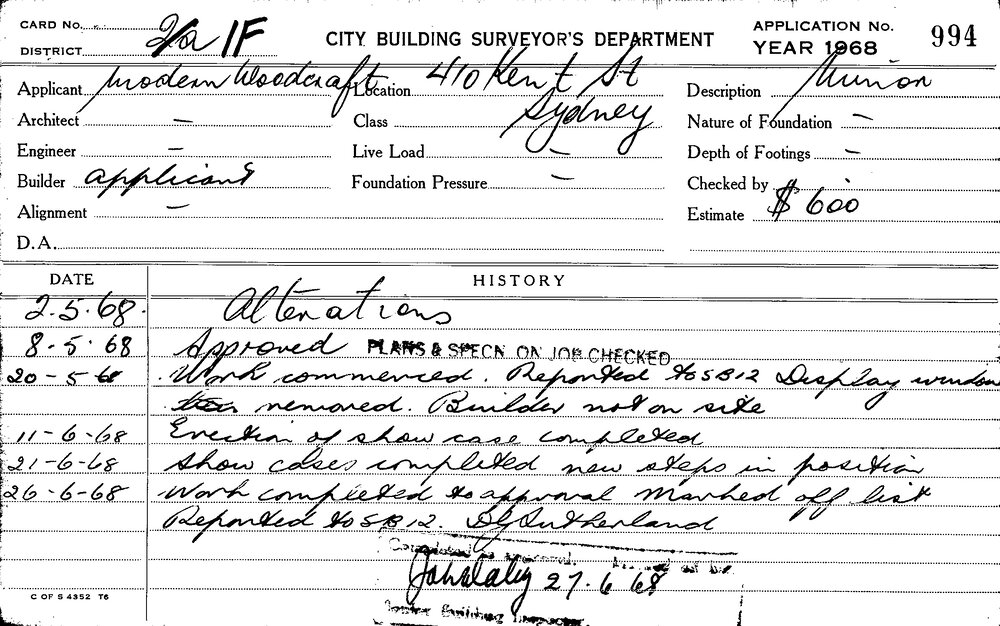 CARD No. 2/a 1F
DISTRICT
CITY BUILDING SURVEYOR'S DEPARTMENT
APPLICATION No. 994
YEAR 1968
Applicant Modern Woodcraft Location 410 Kent St Sydney Description Minor
Architect — Class Nature of Foundation —
Engineer — Live Load — Depth of Footings —
Builder applicant Foundation Pressure — Checked by
Alignment — Estimate $ 600
D.A.
DATE HISTORY
2.5.68. Alterations
8-5.68 Approved PLANS & SPECN ON JOB CHECKED
20-5-68 Work commenced. Reported to SB12 Display window
removed. Builder not on site
11-6-68 Erection of show case completed
21-6-68 Show cases completed new steps in position
26-6-68 Work completed to approval Marked off list
Reported to SB12. Sutherland
Completed
27.6.68
Building Inspector
C OF S 4352 T6